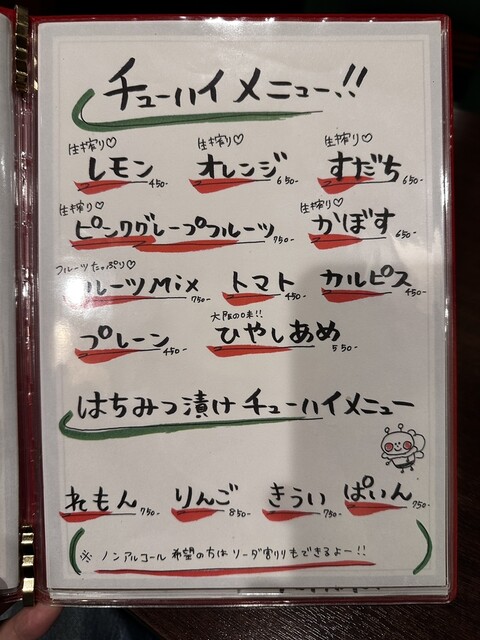 チューハイメニュー!!
生搾り♡ 生搾り♡ 生搾り♡
レモン 450- オレンジ 650- すだち 650-
生搾り♡ 生搾り♡
ピンクグレープフルーツ 750- かぼす 650-
フルーツたっぷり♡
フルーツMix 750- トマト 450- カルピス 450-
大阪の味!!
プレーン 450- ひやしあめ 550-
はちみつ漬けチューハイメニュー
れもん 750- りんご 850- きうい 750- ぱいん 750-
(※ ノンアルコール希望の方はソーダ割りもできるよー!!)